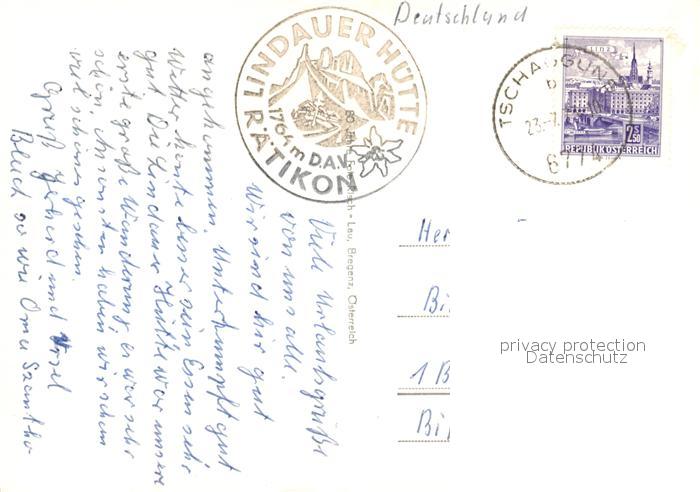 Deutschland
LINDAUER HÜTTE
1764 m D.A.V.
RÄTIKON
LINZ
TSCHAGGUNS
b
23.-7.
6774
2.50
REPUBLIK ÖSTERREICH
Risch-Lau, Bregenz, Österreich
Viele Urlaubsgrüße
von uns alle.
Wir sind hir gut
angekommen. Unterkumpft gut
Wetter könte besser sein Essen sehr
gut. Die Lindauer Hütte war unsere
erste große Wanderung, es war sehr
schön. Ansonsten haben wir schon
viel schönes gesehen.
Gruß Gerhard und Ursel
so wie Oma
Her
Bi
1 B
Bi
privacy protection
Datenschutz